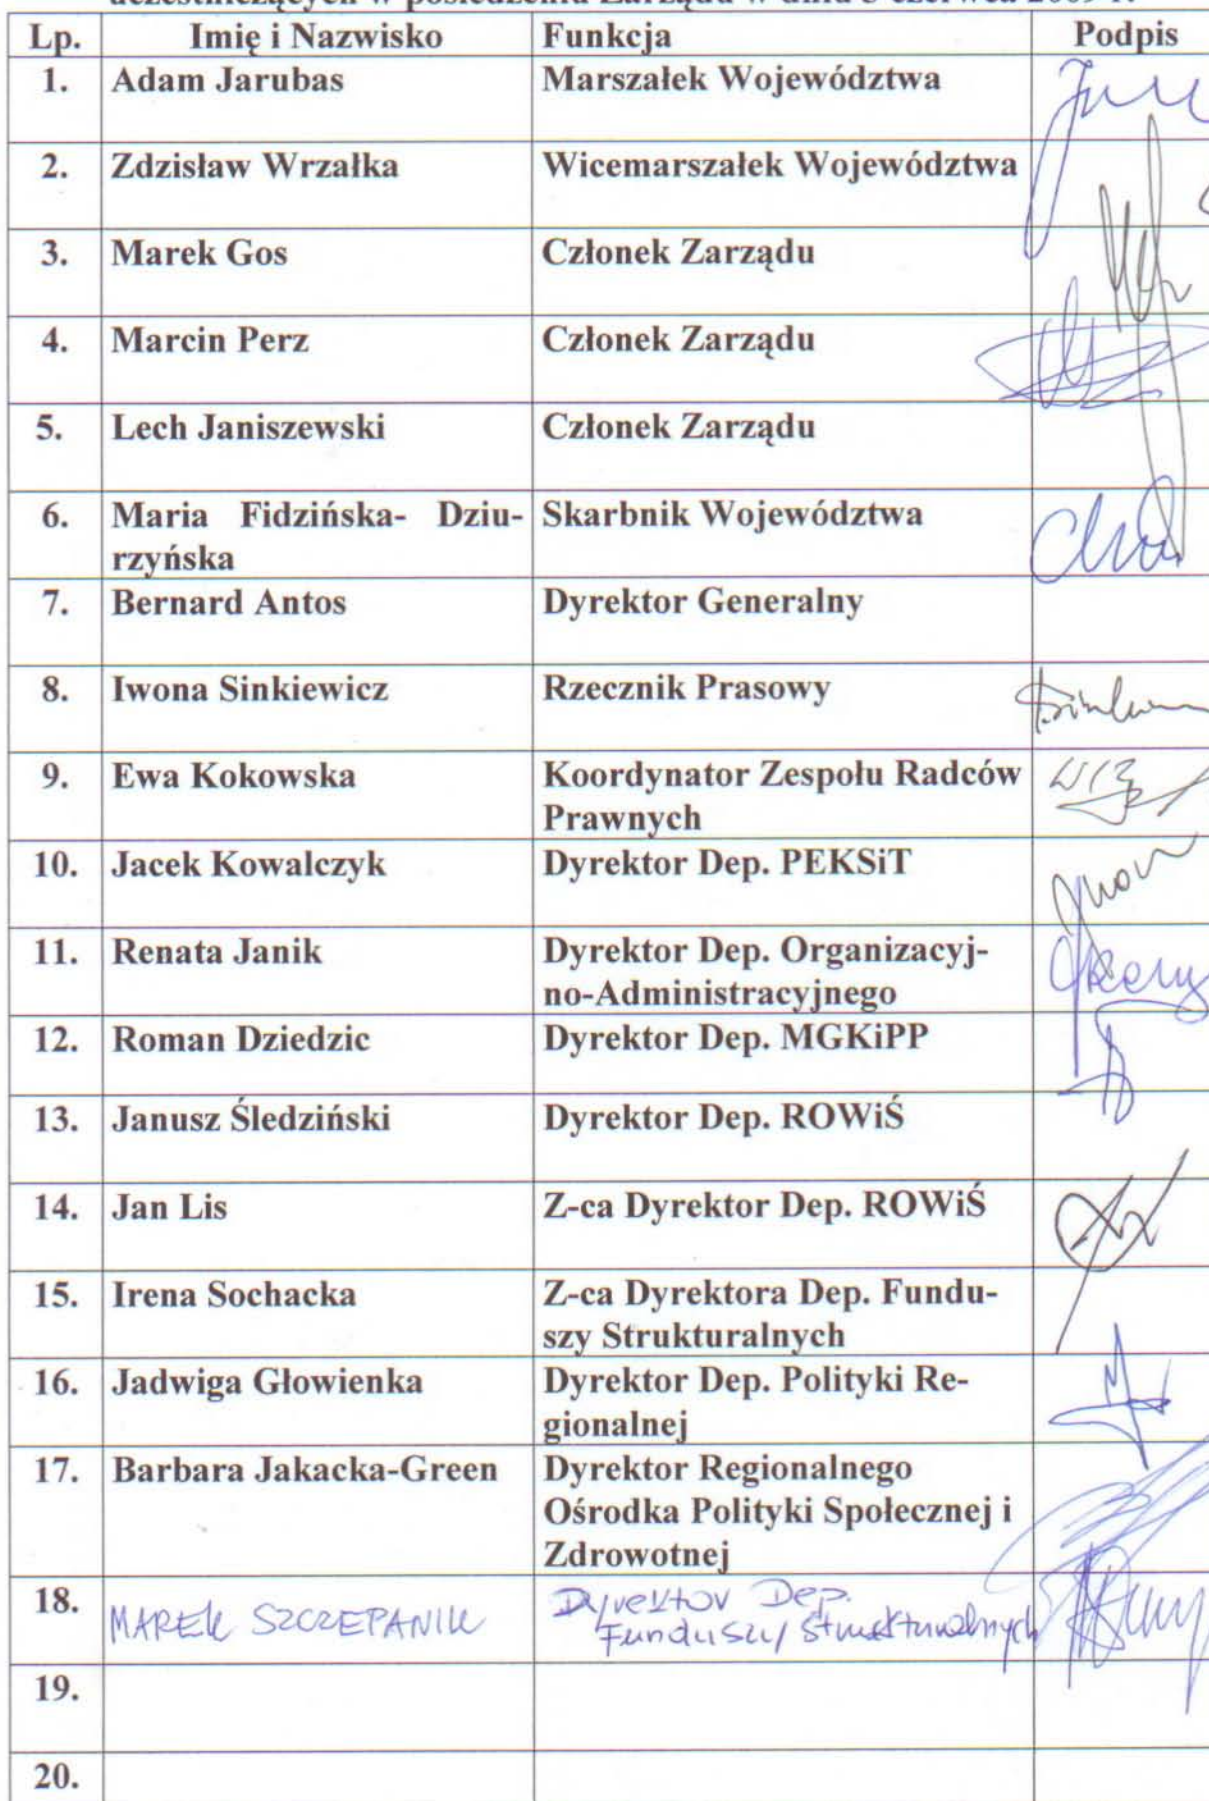 uczestniczących w posiedzeniu Zarządu w dniu 3 czerwca 2009 r.
Lp. Imię i Nazwisko Funkcja Podpis
1. Adam Jarubas Marszałek Województwa
2. Zdzisław Wrzałka Wicemarszałek Województwa
3. Marek Gos Członek Zarządu
4. Marcin Perz Członek Zarządu
5. Lech Janiszewski Członek Zarządu
6. Maria Fidzińska- Dziu- Skarbnik Województwa
rzyńska
7. Bernard Antos Dyrektor Generalny
8. Iwona Sinkiewicz Rzecznik Prasowy
9. Ewa Kokowska Koordynator Zespołu Radców
Prawnych
10. Jacek Kowalczyk Dyrektor Dep. PEKSiT
11. Renata Janik Dyrektor Dep. Organizacyj-
no-Administracyjnego
12. Roman Dziedzic Dyrektor Dep. MGKiPP
13. Janusz Śledziński Dyrektor Dep. ROWiŚ
14. Jan Lis Z-ca Dyrektor Dep. ROWiŚ
15. Irena Sochacka Z-ca Dyrektora Dep. Fundu-
szy Strukturalnych
16. Jadwiga Głowienka Dyrektor Dep. Polityki Re-
gionalnej
17. Barbara Jakacka-Green Dyrektor Regionalnego
Ośrodka Polityki Społecznej i
Zdrowotnej
18. MAREK SZCZEPANIK Dyrektor Dep.
Funduszy Strukturalnych
19.
20.